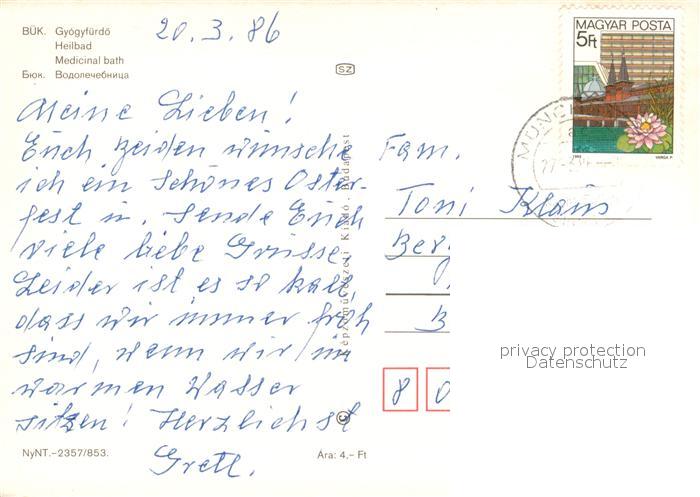 BÜK. Gyógyfürdő
Heilbad
Medicinal bath
Бюк. Водолечебница
20.3.86
SZ
MAGYAR POSTA
5Ft
VARGA P.
Meine Lieben!
Euch beiden wünsche
ich ein schönes Oster-
fest u. sende Euch
viele liebe Grüsse.
Leider ist es so kalt,
dass wir immer froh
sind, wenn wir im
warmen Wasser
sitzen! Herzlichst
Gretl.
Képzőművészeti Kiadó, Budapest
Fam.
Toni Klaus
Ber
B
8 0
privacy protection
Datenschutz
NyNT.-2357/853.
Ára: 4,- Ft